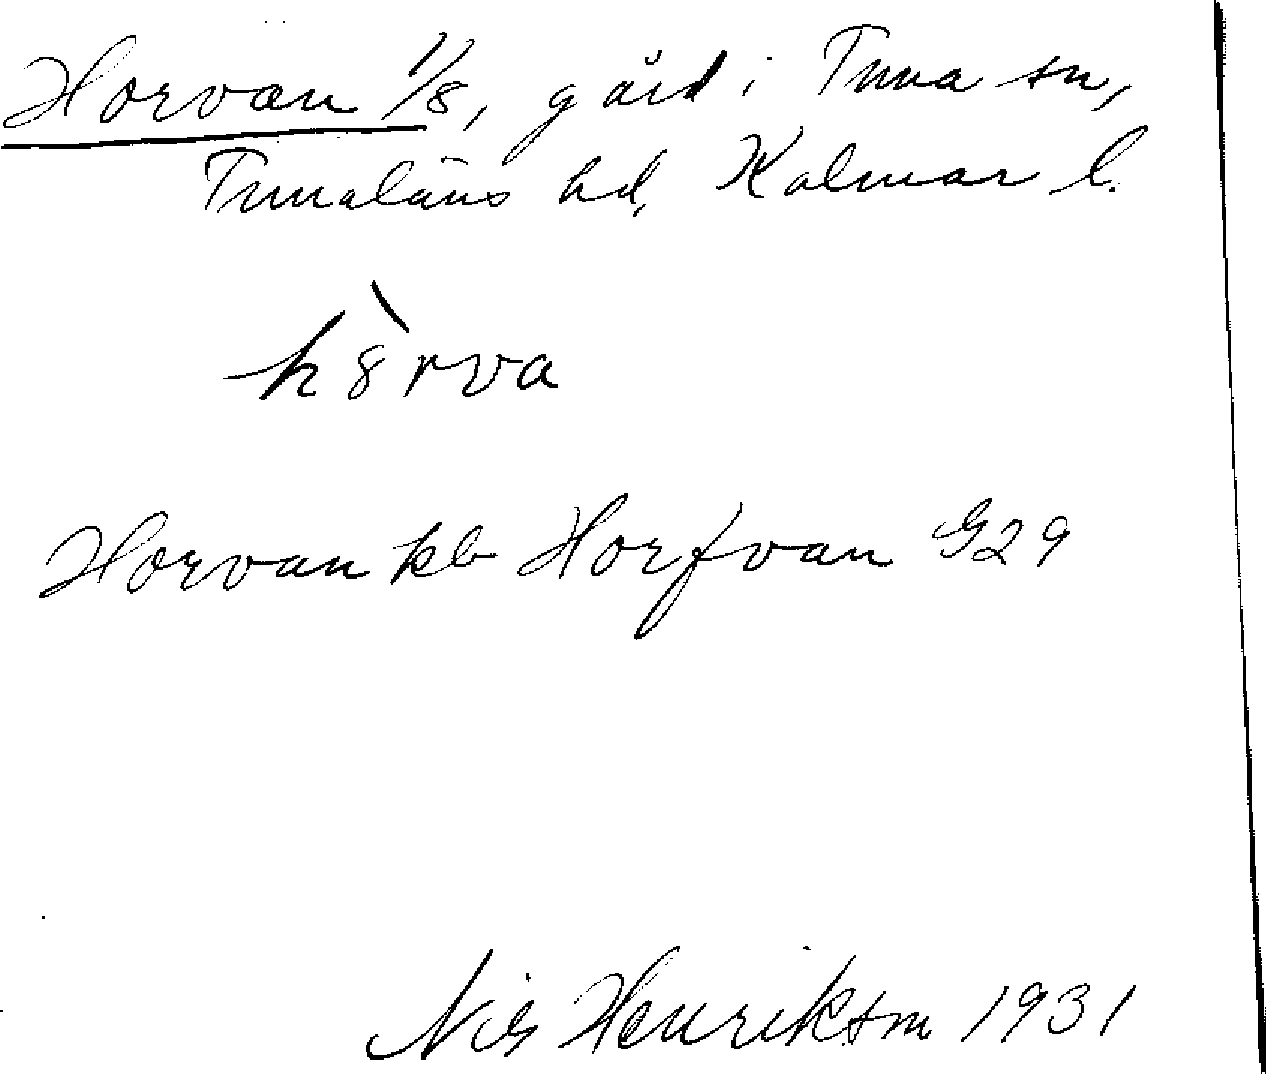 Horvan 1/8, gård i Tuna sn,
Tunaläns hd, Kalmar l.
hȣ̀rva
Horvan kb Horfvan G29
Nils Henriksson 1931